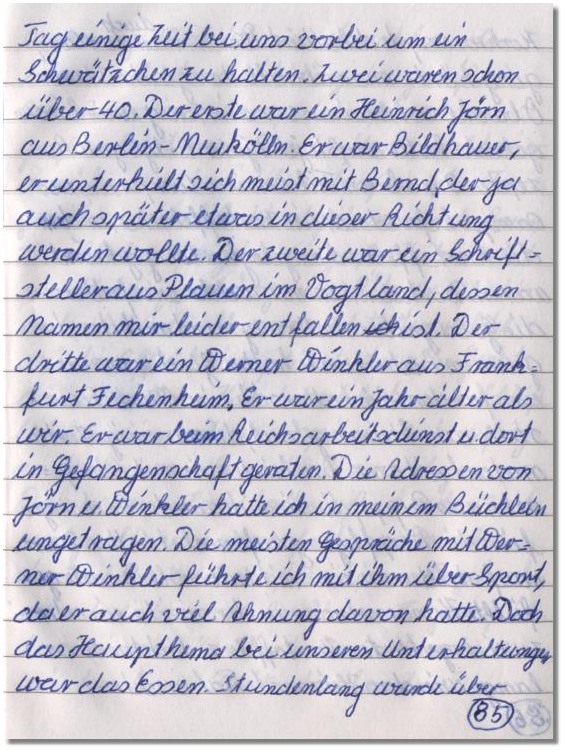 Tag einige Zeit bei uns vorbei um ein
Schwätzchen zu halten. Zwei waren schon
über 40. Der erste war ein Heinrich Jörn
aus Berlin-Neukölln. Er war Bildhauer,
er unterhielt sich meist mit Bernd, der ja
auch später etwas in dieser Richtung
werden wollte. Der zweite war ein Schrift=
steller aus Plauen im Vogtland, dessen
Namen mir leider entfallen ich ist. Der
dritte war ein Werner Winkler aus Frank=
furt Fechenheim. Er war ein Jahr älter als
wir. Er war beim Reichsarbeitsdienst u. dort
in Gefangenschaft geraten. Die Adressen von
Jörn u. Winkler hatte ich in meinem Büchlein
eingetragen. Die meisten Gespräche mit Wer=
ner Winkler führte ich mit ihm über Sport,
da er auch viel Ahnung davon hatte. Doch
das Hauptthema bei unseren Unterhaltungen
war das Essen. Stundenlang wurde über
85